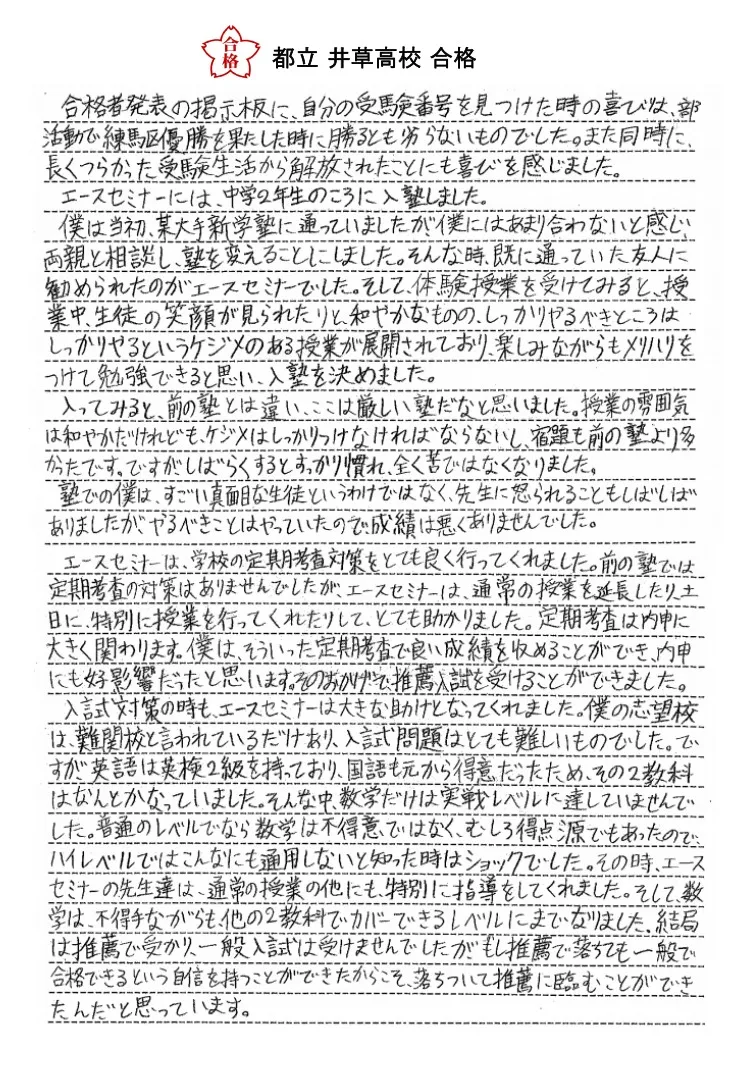 合格
都立 井草高校 合格
合格者発表の掲示板に、自分の受験番号を見つけた時の喜びは、部
活動で練馬区優勝を果たした時に勝るとも劣らないものでした。また同時に、
長くつらかった受験生活から解放されたことにも喜びを感じました。
エースセミナーには、中学2年生のころに入塾しました。
僕は当初、某大手新学塾に通っていましたが僕にはあまり合わないと感じ、
両親と相談し、塾を変えることにしました。そんな時、既に通っていた友人に
勧められたのがエースセミナーでした。そして、体験授業を受けてみると、授
業中、生徒の笑顔が見られたりと、和やかなものの、しっかりやるべきところは
しっかりやるというケジメのある授業が展開されており、楽しみながらもメリハリを
つけて勉強できると思い、入塾を決めました。
入ってみると、前の塾とは違い、ここは厳しい塾だなと思いました。授業の雰囲気
は和やかだけれども、ケジメはしっかりつけなければならないし、宿題も前の塾より多
かったです。ですがしばらくするとすっかり慣れ、全く苦ではなくなりました。
塾での僕は、すごい真面目な生徒というわけではなく、先生に怒られることもしばしば
ありましたが、やるべきことはやっていたので成績は悪くありませんでした。
エースセミナーは、学校の定期考査対策をとても良く行ってくれました。前の塾では
定期考査の対策はありませんでしたが、エースセミナーは、通常の授業を延長したり、土
日に、特別に授業を行ってくれたりして、とても助かりました。定期考査は内申に
大きく関わります。僕は、そういった定期考査で良い成績を収めることができ、内申
にも好影響だったと思います。そのおかげで、推薦入試を受けることができました。
入試対策の時も、エースセミナーは大きな助けとなってくれました。僕の志望校
は、難関校と言われているだけあり、入試問題はとても難しいものでした。で
すが英語は英検2級を持っており、国語も元から得意だったため、その2教科
はなんとかなっていました。そんな中、数学だけは実戦レベルに達していませんで
した。普通のレベルでなら数学は不得意ではなく、むしろ得点源でもあったので、
ハイレベルではこんなにも通用しないと知った時はショックでした。その時、エース
セミナーの先生達は、通常の授業の他にも、特別に指導をしてくれました。そして、数
学は、不得手ながらも、他の2教科でカバーできるレベルにまでなりました。結局
は推薦で受かり、一般入試は受けませんでしたが、もし推薦で落ちても一般で
合格できるという自信を持つことができたからこそ、落ちついて推薦に臨むことができ
たんだと思っています。